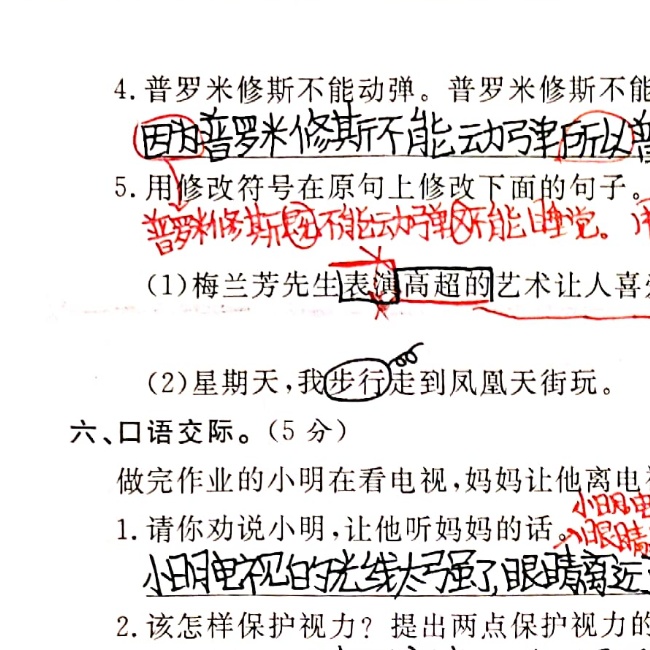 4.普罗米修斯不能动弹。普罗米修斯不能
因为普罗米修斯不能动弹所以普
5.用修改符号在原句上修改下面的句子。
普罗米修斯既不能动弹又不能睡觉。
(1)梅兰芳先生表演高超的艺术让人喜
(2)星期天,我步行走到凤凰天街玩。
六、口语交际。(5分)
做完作业的小明在看电视,妈妈让他离电视
小明电
1.请你劝说小明,让他听妈妈的话。
眼睛
小明电视的光线太强了,眼睛离近
2.该怎样保护视力?提出两点保护视力的